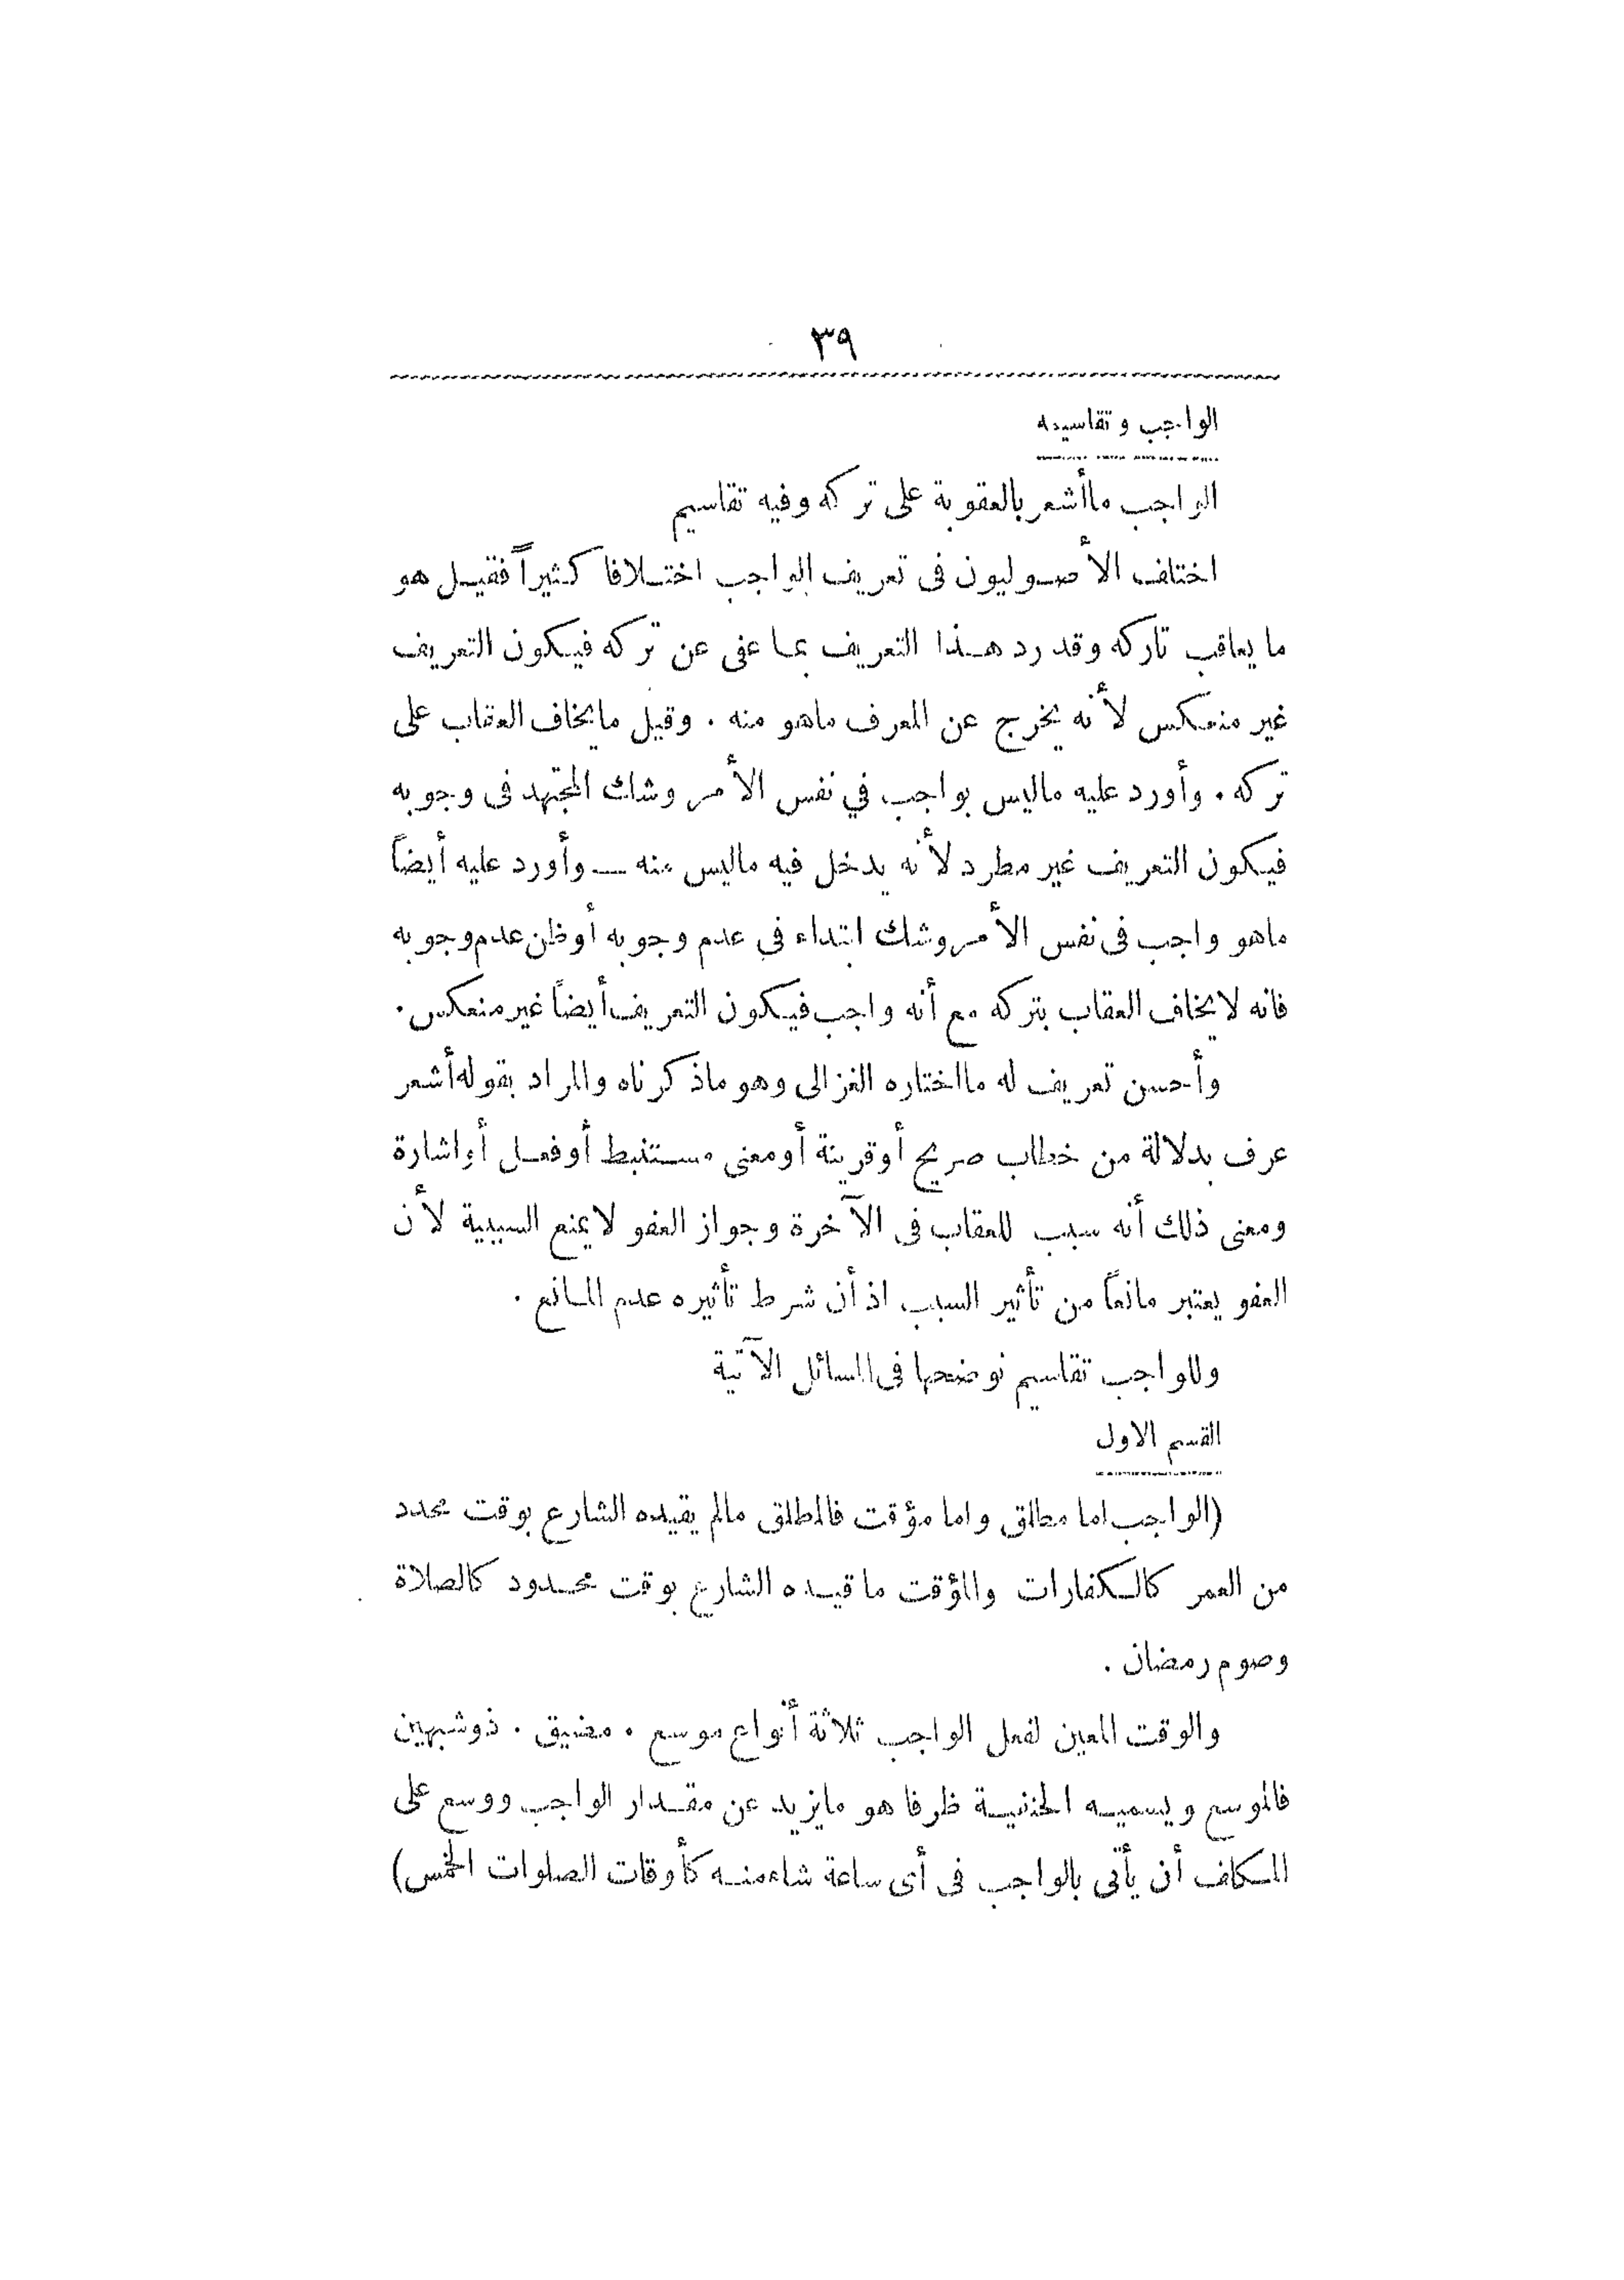 ٣٩
الواجب وتقاسيمه
الواجب ماأشعر بالعقوبة على تركه وفيه تقاسيم
اختلف الأصوليون فى تعريف الواجب اختلافا كثيراً فقيل هو
ما يعاقب تاركه وقد رد هذا التعريف بما عفى عن تركه فيكون التعريف
غير منعكس لأنه يخرج عن المعرف ماهو منه . وقيل مايخاف العقاب على
تركه . وأورد عليه ماليس بواجب في نفس الأمر وشك المجتهد فى وجوبه
فيكون التعريف غير مطرد لأنه يدخل فيه ماليس منه — وأورد عليه أيضاً
ماهو واجب فى نفس الأمر وشك ابتداء فى عدم وجوبه أوظن عدم وجوبه
فانه لايخاف العقاب بتركه مع أنه واجب فيكون التعريف أيضاً غير منعكس .
وأحسن تعريف له مااختاره الغزالى وهو ماذكرناه والمراد بقوله أشعر
عرف بدلالة من خطاب صريح أوقرينة أومعنى مستنبط أوفعل أواشارة
ومعنى ذلك أنه سبب للعقاب فى الآخرة وجواز العفو لايمنع السببية لأن
العفو يعتبر مانعاً من تأثير السبب اذ أن شرط تأثيره عدم المانع .
وللواجب تقاسيم نوضحها فى المسائل الآتية
القسم الاول
(الواجب اما مطلق واما مؤقت فالمطلق مالم يقيده الشارع بوقت محدد
من العمر كالكفارات والمؤقت ماقيده الشارع بوقت محدود كالصلاة
وصوم رمضان .
والوقت المعين لفعل الواجب ثلاثة أنواع موسع . مضيق . ذوشبهين
فالموسع ويسميه الحنفية ظرفا هو مايزيد عن مقدار الواجب ووسع على
المكلف أن يأتى بالواجب فى أى ساعة شاءمنه كأوقات الصلوات الخمس)